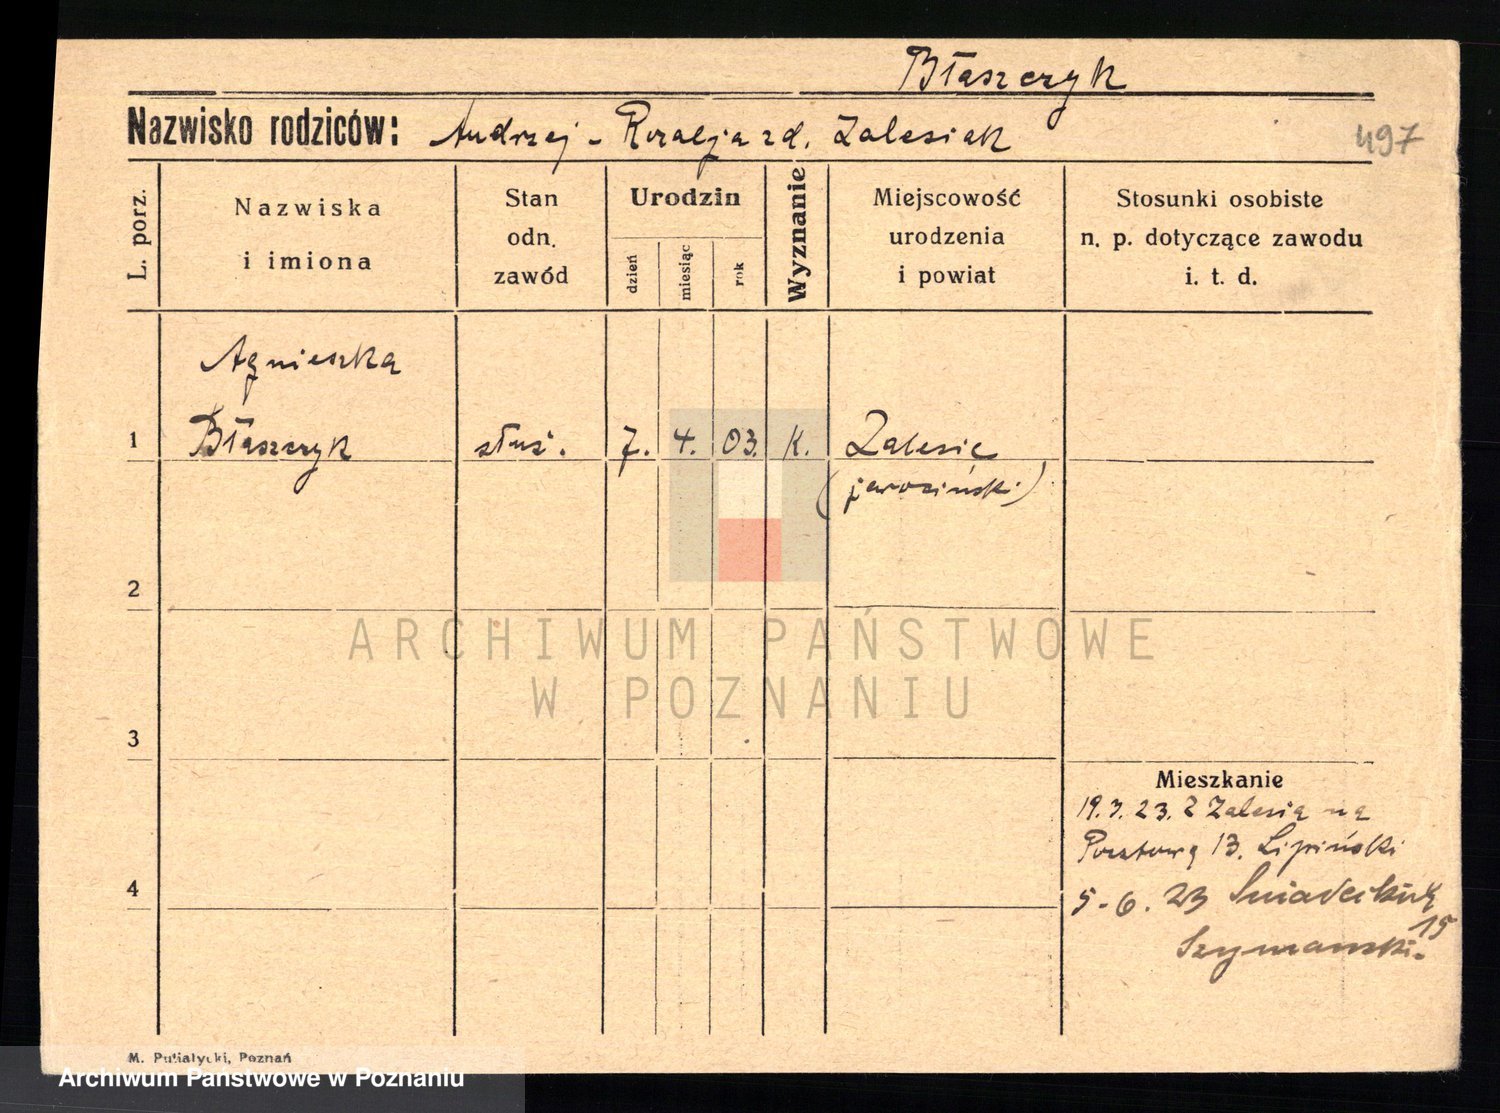 Błaszczyk
Nazwisko rodziców: Andrzej - Rozalja zd. Zalesiak
497
L. porz.
Nazwiska
i imiona
Stan
odn.
zawód
Urodzin
dzień
miesiąc
rok
Wyznanie
Miejscowość
urodzenia
i powiat
Stosunki osobiste
n. p. dotyczące zawodu
i. t. d.
Agnieszka
1 Błaszczyk służ. 7. 4. 03. K. Zalesie
(jarociński)
2
ARCHIWUM PAŃSTWOWE
W POZNANIU
3
Mieszkanie
19. 3. 23. Z Zalesia na
Pocztową 13. Lipiński
4
5-6. 23 Śniadeckich
15
Szymanski.
M. Putiatycki, Poznań
Archiwum Państwowe w Poznaniu